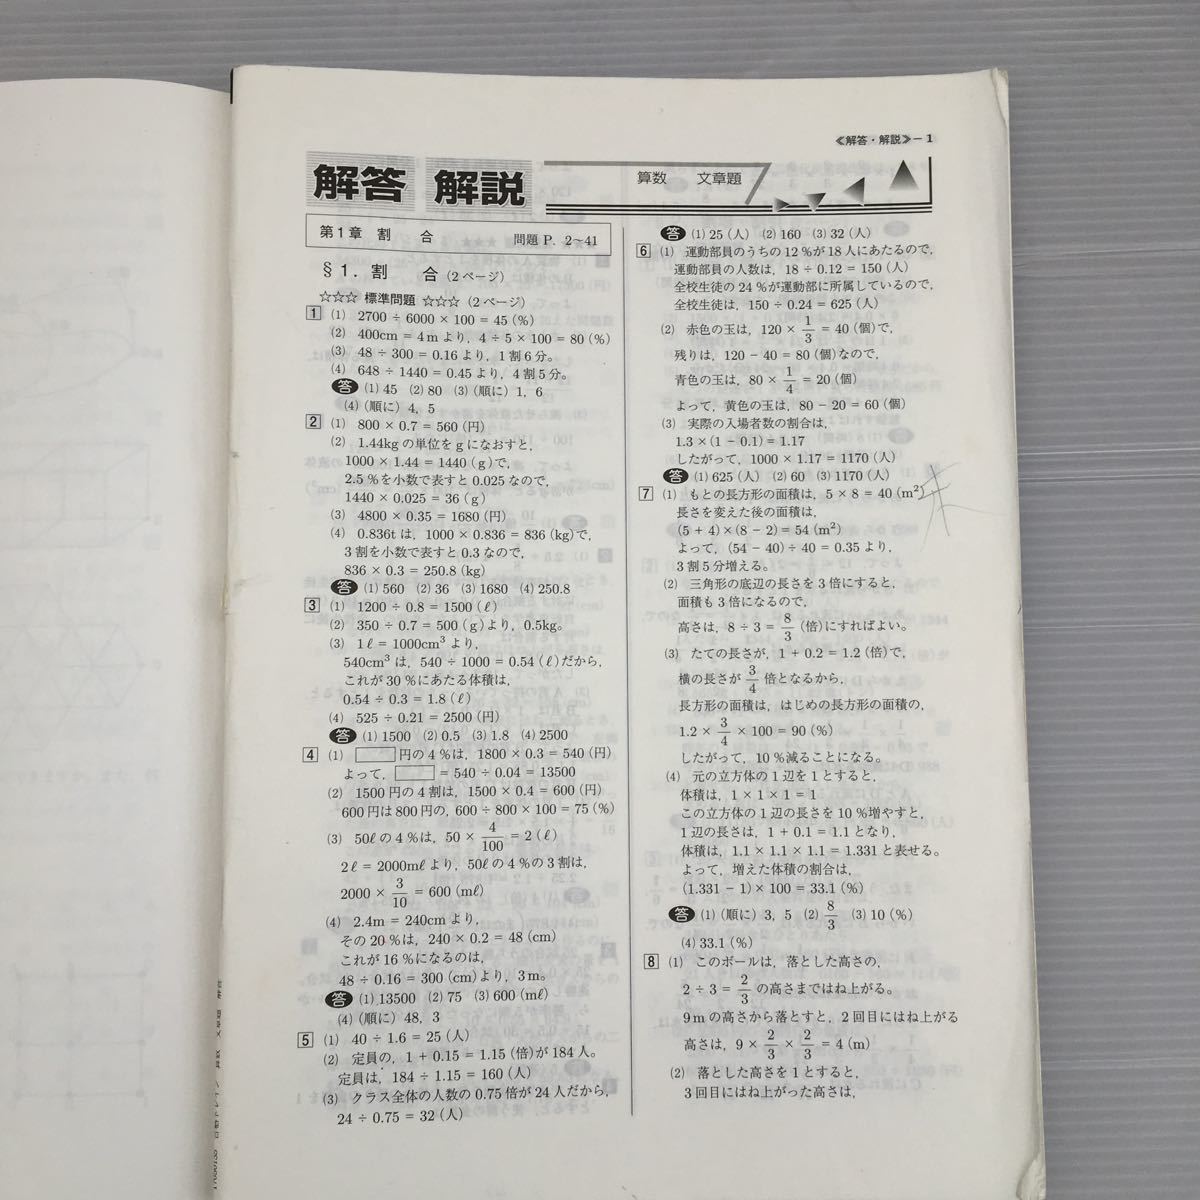 《解答・解説》－1
解答 解説
算数 文章題
第1章 割 合 問題 P. 2～41
§1. 割 合 (2ページ)
☆☆☆ 標準問題 ☆☆☆ (2ページ)
1 (1) 2700 ÷ 6000 × 100 = 45 (%)
(2) 400cm = 4m より, 4 ÷ 5 × 100 = 80 (%)
(3) 48 ÷ 300 = 0.16 より, 1割6分。
(4) 648 ÷ 1440 = 0.45 より, 4割5分。
答 (1) 45 (2) 80 (3) (順に) 1, 6
(4) (順に) 4, 5
2 (1) 800 × 0.7 = 560 (円)
(2) 1.44kg の単位を g になおすと,
1000 × 1.44 = 1440 (g) で,
2.5 % を小数で表すと 0.025 なので,
1440 × 0.025 = 36 (g)
(3) 4800 × 0.35 = 1680 (円)
(4) 0.836t は, 1000 × 0.836 = 836 (kg) で,
3割を小数で表すと 0.3 なので,
836 × 0.3 = 250.8 (kg)
答 (1) 560 (2) 36 (3) 1680 (4) 250.8
3 (1) 1200 ÷ 0.8 = 1500 (ℓ)
(2) 350 ÷ 0.7 = 500 (g) より, 0.5kg。
(3) 1ℓ = 1000cm³ より,
540cm³ は, 540 ÷ 1000 = 0.54 (ℓ) だから,
これが 30 % にあたる体積は,
0.54 ÷ 0.3 = 1.8 (ℓ)
(4) 525 ÷ 0.21 = 2500 (円)
答 (1) 1500 (2) 0.5 (3) 1.8 (4) 2500
4 (1) □ 円の 4 % は, 1800 × 0.3 = 540 (円)
よって, □ = 540 ÷ 0.04 = 13500
(2) 1500 円の 4 割は, 1500 × 0.4 = 600 (円)
600 円は 800 円の, 600 ÷ 800 × 100 = 75 (%)
(3) 50ℓ の 4 % は, 50 × 4/100 = 2 (ℓ)
2ℓ = 2000mℓ より, 50ℓ の 4 % の 3 割は,
2000 × 3/10 = 600 (mℓ)
(4) 2.4m = 240cm より,
その 20 % は, 240 × 0.2 = 48 (cm)
これが 16 % になるのは,
48 ÷ 0.16 = 300 (cm) より, 3m。
答 (1) 13500 (2) 75 (3) 600 (mℓ)
(4) (順に) 48, 3
5 (1) 40 ÷ 1.6 = 25 (人)
(2) 定員の, 1 + 0.15 = 1.15 (倍) が 184 人。
定員は, 184 ÷ 1.15 = 160 (人)
(3) クラス全体の人数の 0.75 倍が 24 人だから,
24 ÷ 0.75 = 32 (人)
答 (1) 25 (人) (2) 160 (3) 32 (人)
6 (1) 運動部員のうちの 12 % が 18 人にあたるので,
運動部員の人数は, 18 ÷ 0.12 = 150 (人)
全校生徒の 24 % が運動部に所属しているので,
全校生徒は, 150 ÷ 0.24 = 625 (人)
(2) 赤色の玉は, 120 × 1/3 = 40 (個) で,
残りは, 120 − 40 = 80 (個) なので,
青色の玉は, 80 × 1/4 = 20 (個)
よって, 黄色の玉は, 80 − 20 = 60 (個)
(3) 実際の入場者数の割合は,
1.3 × (1 − 0.1) = 1.17
したがって, 1000 × 1.17 = 1170 (人)
答 (1) 625 (人) (2) 60 (3) 1170 (人)
7 (1) もとの長方形の面積は, 5 × 8 = 40 (m²)
長さを変えた後の面積は,
(5 + 4) × (8 − 2) = 54 (m²)
よって, (54 − 40) ÷ 40 = 0.35 より,
3 割 5 分増える。
(2) 三角形の底辺の長さを 3 倍にすると,
面積も 3 倍になるので,
高さは, 8 ÷ 3 = 8/3 (倍) にすればよい。
(3) たての長さが, 1 + 0.2 = 1.2 (倍) で,
横の長さが 3/4 倍となるから,
長方形の面積は, はじめの長方形の面積の,
1.2 × 3/4 × 100 = 90 (%)
したがって, 10 % 減ることになる。
(4) 元の立方体の 1 辺を 1 とすると,
体積は, 1 × 1 × 1 = 1
この立方体の 1 辺の長さを 10 % 増やすと,
1 辺の長さは, 1 + 0.1 = 1.1 となり,
体積は, 1.1 × 1.1 × 1.1 = 1.331 と表せる。
よって, 増えた体積の割合は,
(1.331 − 1) × 100 = 33.1 (%)
答 (1) (順に) 3, 5 (2) 8/3 (3) 10 (%)
(4) 33.1 (%)
8 (1) このボールは, 落とした高さの,
2 ÷ 3 = 2/3 の高さまではね上がる。
9m の高さから落とすと, 2 回目にはね上がる
高さは, 9 × 2/3 × 2/3 = 4 (m)
(2) 落とした高さを 1 とすると,
3 回目にはね上がった高さは,